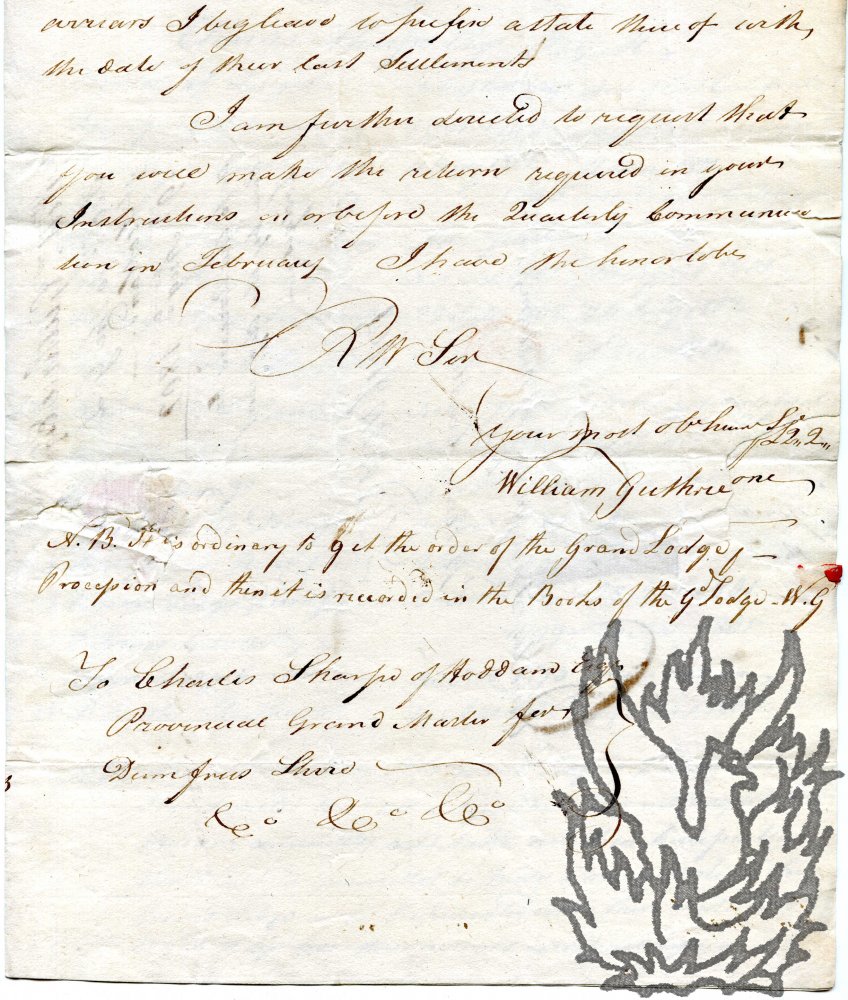 arrears I beg leave to prefix a state thereof with
the date of their last Settlements
I am further directed to request that
you will make the return required in your
Instructions on or before the Quarterly Communica
tion in February I have the honor to be
R W Sir
your most obt humle St
William Guthrie
N.B. It is ordinary to get the order of the Grand Lodge
Procession and then it is recorded in the Books of the Gd Lodge - W.G
To Charles Sharpe of Hoddam Esqr
Provincial Grand Master for
Dumfries Shire
&c &c &c